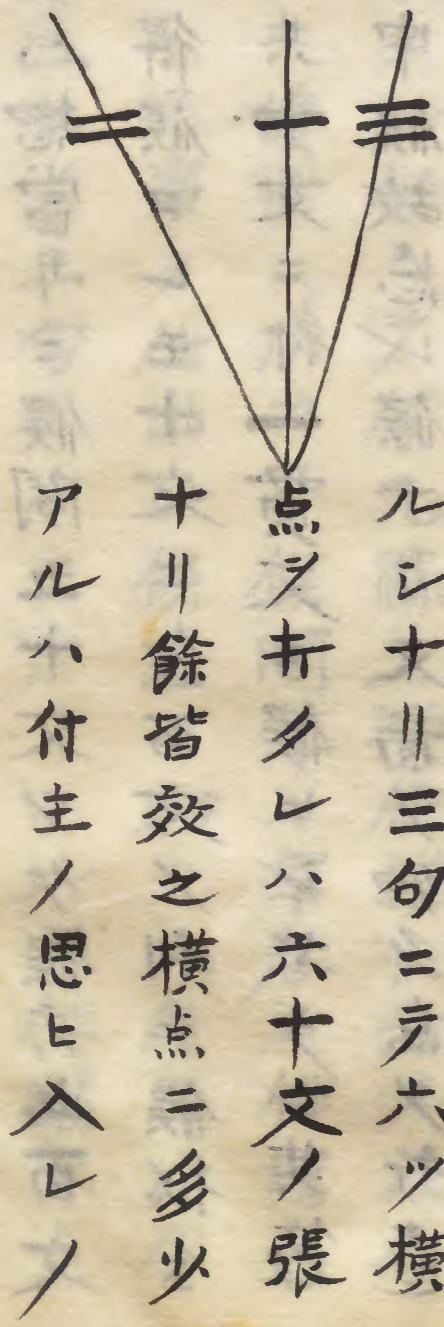 ルシナリ三句ニテ六ツ横
点ヲ打タレハ六十文ノ張
ナリ餘皆效之横点ニ多少
アルハ付主ノ思ヒ入レノ